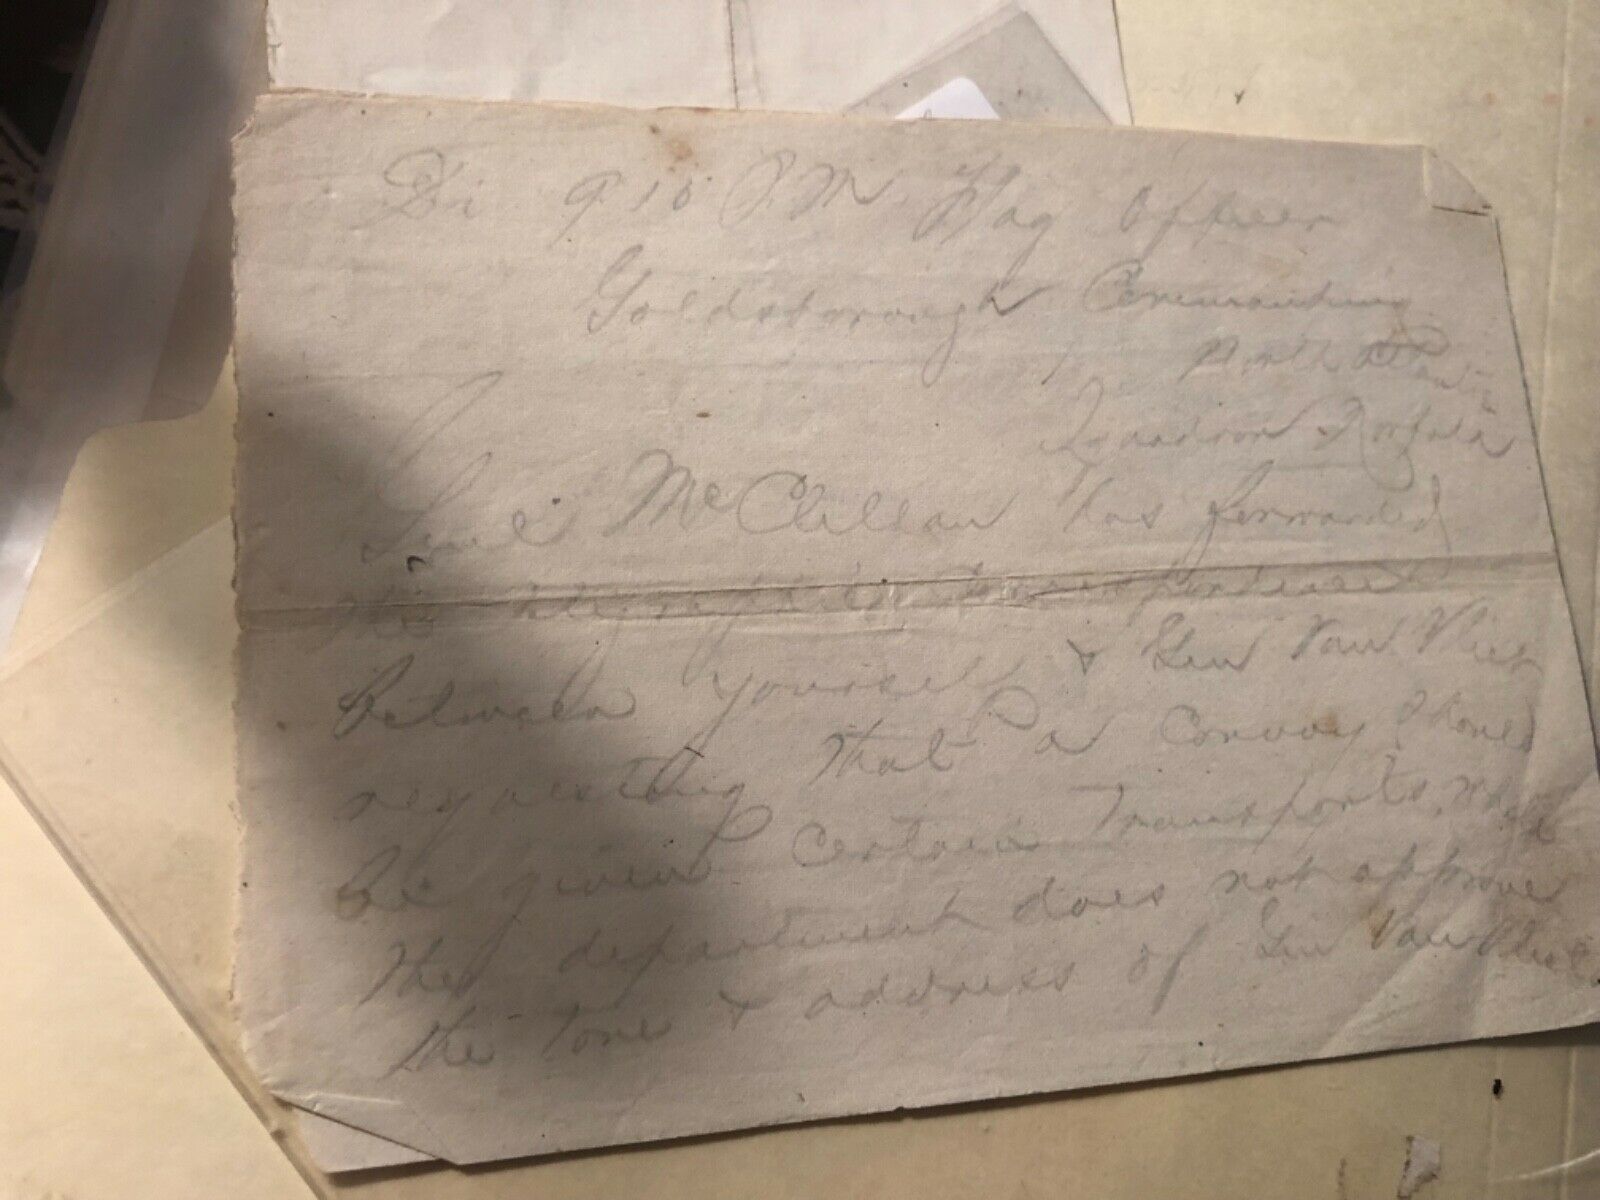 9.10 P.M. Flag Officer
Goldsborough Commanding
North Atlantic
Squadron Norfolk
Genl McClellan has forwarded
the telegraphic correspondence
between yourself & Gen Van Vliet
requesting that a convoy should
be given certain transports. While
the department does not approve
the tone & address of Gen Van Vliet